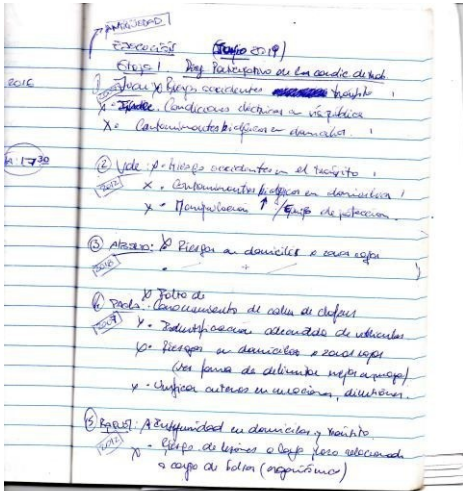 ANTIGÜEDAD
Ejecución (Junio 2019)
Etapa 1 Diag Participativo de las condic. de trab.
2016 1) Juan X Riesgo accidentes tránsito
Condiciones eléctricas en vía pública
X • Contaminantes biológicos en domicilios.
17 30
② Vale: • Riesgo accidentes en el tránsito
2012 X • Contaminantes biológicos en domicilios
X • Manipulación ↑ / Equipo de protección.
③ X Riesgos en domicilios x zonas rojas
2018
④ Paola: X Falta de Conocimiento de
2009 X • Identificación adecuada de vehículos
X • Riesgos en domicilios x zonas rojas
(ver forma de delimitar mejor a mapa)
X • Unificar criterios en
⑤ Raquel: en domicilios y tránsito.
2012 X • Riesgo de lesiones a largo plazo relacionado
a carga de bolsa (ergonómico)